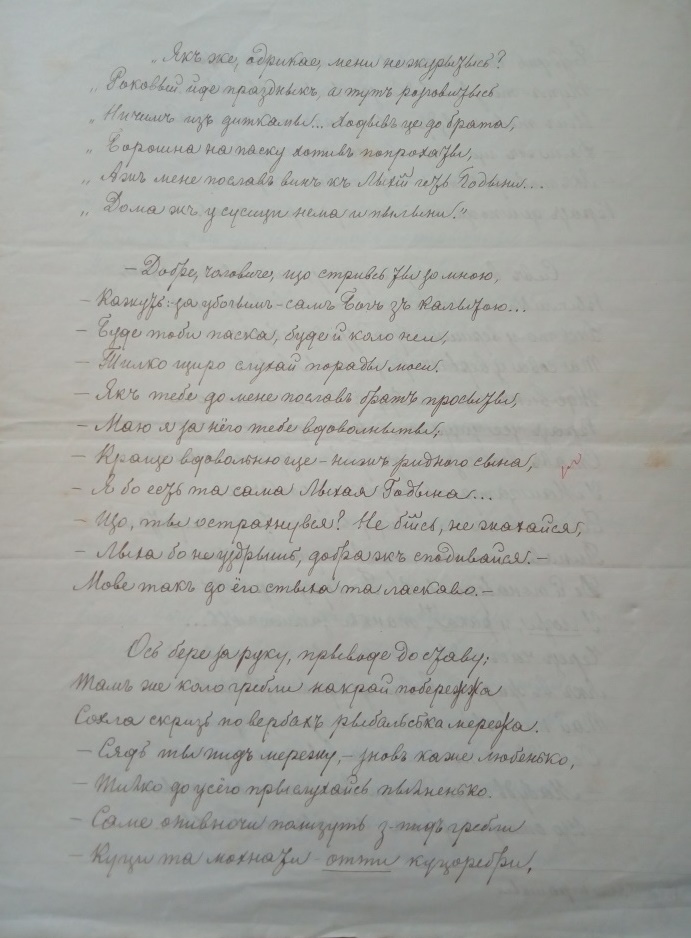 „Якъ же, одрикае, мени не журытысь?
„Роковый йде праздныкъ, а тутъ розговитысь
„Ничимъ изъ диткамы... Ходывъ це до брата,
„Борошна на паску хотивъ попрохаты,
„Ажъ мене пославъ винъ къ Лыхій изъ Годыни...
„Дома жъ у сусици нема и пылыны."
— Добре, чоловиче, що стривсь ты за мною,
— Кажуть: за убогимъ - самъ Богъ зъ калытою...
— Буде тоби паска, буде й коло неи,
— Тилко щиро слухай порады моеи.
— Якъ тебе до мене пославъ братъ просыты,
— Маю я за нёго тебе вдовольныты,
— Краще вдовольню ще - нижъ ридного сына,
— Я бо есть та сама Лыхая Годына...
— Що, ты острахнувся? Не бійсь, не жахайся,
— Лыха бо не уздрышъ, добра жъ сподивайся. —
Мове такъ до ёго стыха та ласкаво. —
Ось бере за руку, прыводе до ставу;
Тамъ же коло гребли на край побережжа
Сохла скризь по вербахъ рыбальська мережа.
— Сядь ты пидъ мережу, — зновъ каже любенько,
— Тилько до усёго прыслухайсь пыльненько.
— Саме опивночи полизуть з-пидъ гребли
— Куци та мохнати - отти куцоребри,